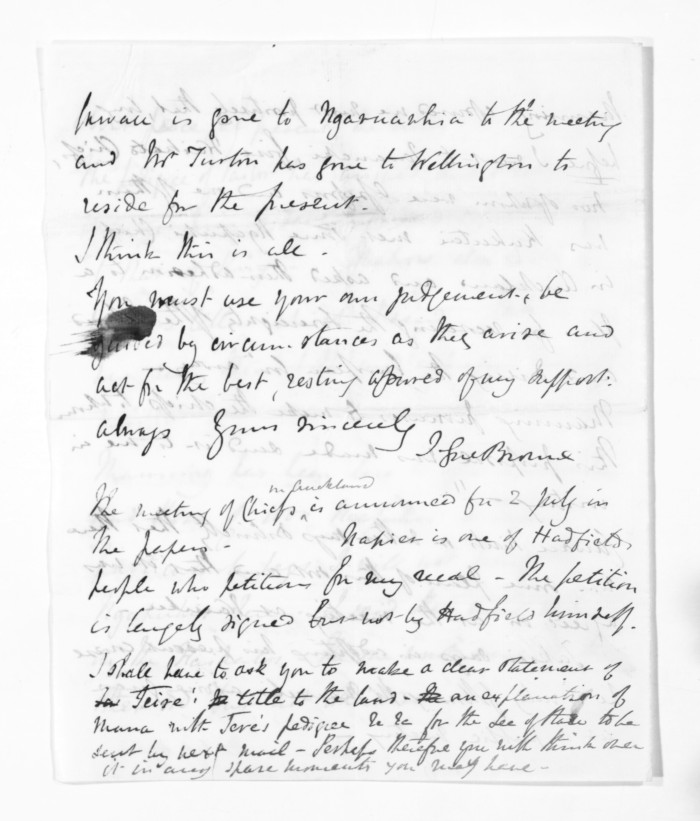 is gone to Ngaruawhia to the meeting
and Mr Turton has gone to Wellington to
reside for the present.
I think this is all -
You must use your own judgement, be
guided by circumstances as they arise and
act for the best, resting assured of my support.
always Yours sincerely
T Gore Browne
in Auckland
The meeting of Chiefs is announced for 2 July in
the papers - Napier is one of Hadfields
people who petitions for my recal - The petition
is largely signed but not by Hadfield himself.
I shall have to ask you to make a clear statement of
Teira's title to the land - an explanation of
Mana with Teira's pedigree &c &c for the Sec of State to be
sent by next mail - Perhaps therefore you will think over
it in any spare moments you may have -